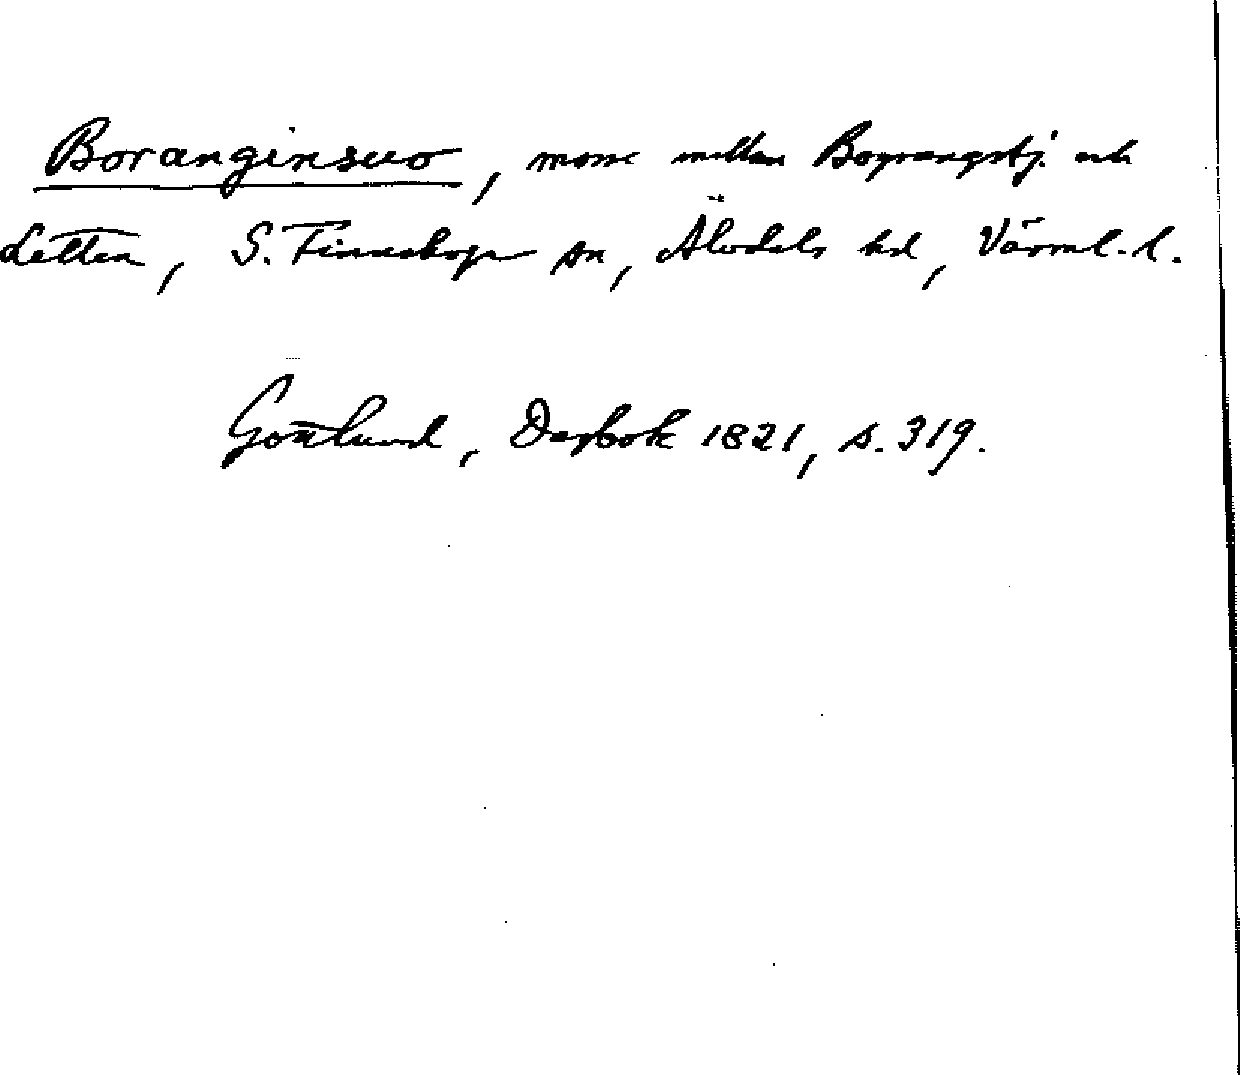 Boranginsuo, mosse mellan Bograngstj. och
Letten, S. Finnskoga sn, Älvdals hd, Värml. l.
Gottlund, Dagbok 1821, s. 319.